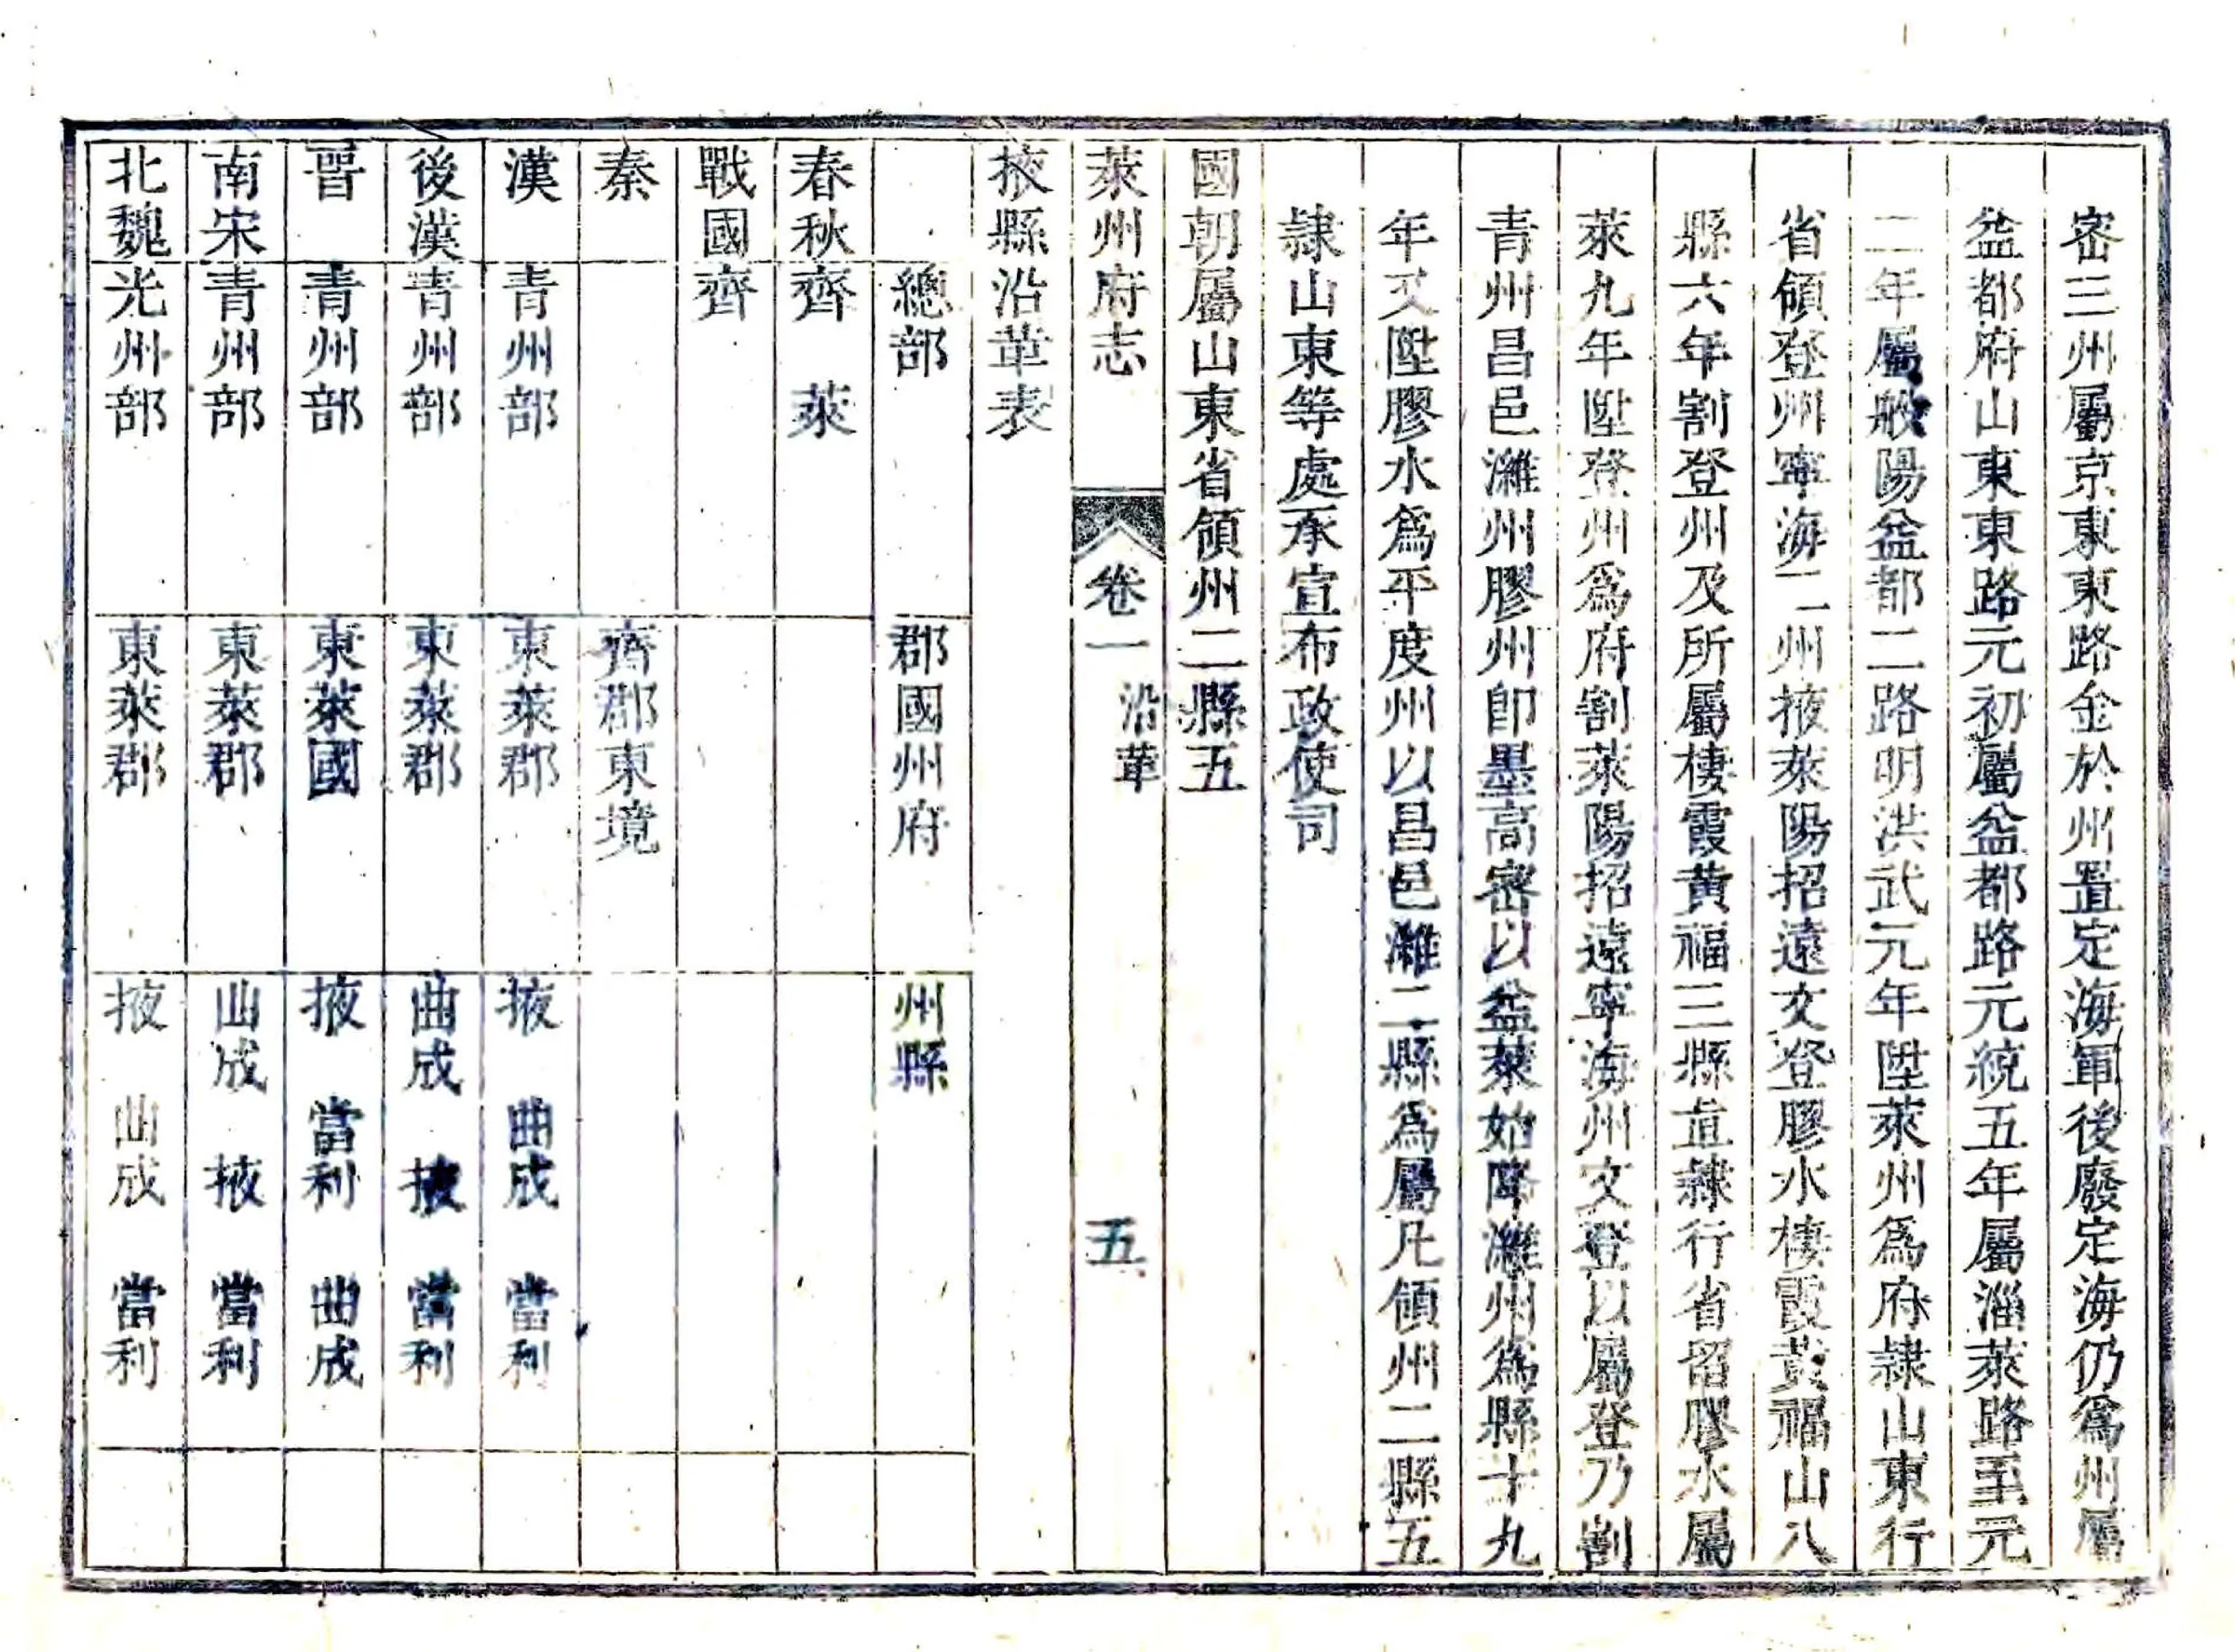 密三州屬京東東路金於州置定海軍後廢定海仍爲州屬
益都府山東東路元初屬益都路元統五年屬淄萊路至元
二年屬般陽益都二路明洪武元年陞萊州爲府隷山東行
省領登州寧海二州掖萊陽招遠文登膠水棲霞黃福山八
縣六年割登州及所屬棲霞黃福三縣直隷行省畱膠水屬
萊九年陞登州爲府割萊陽招遠寧海州文登以屬登乃割
青州昌邑濰州膠州卽墨高密以益萊始降濰州爲縣十九
年又陞膠水爲平度州以昌邑濰二縣爲屬凡領州二縣五
隷山東等處承宣布政使司
國朝屬山東省領州二縣五
萊州府志 卷一 沿革 五
掖縣沿革表
總部 郡國州府 州縣
春秋 齊 萊
戰國 齊
秦 齊郡東境
漢 青州部 東萊郡 掖 曲成 當利
後漢 青州部 東萊郡 曲成 掖 當利
晉 青州部 東萊國 掖 當利 曲成
南宋 青州部 東萊郡 曲成 掖 當利
北魏 光州部 東萊郡 掖 曲成 當利